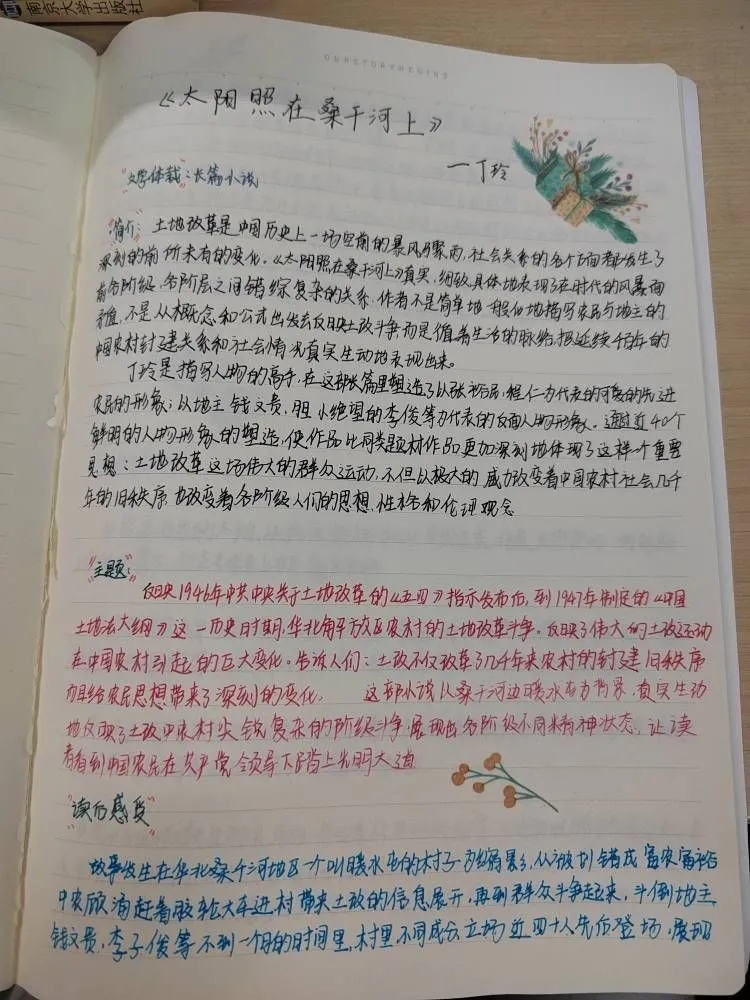 南京大学出版社
OURSTORYBEGINS
《太阳照在桑干河上》
—丁玲
"文学体裁:长篇小说
"简介: 土地改革是中国历史上一场空前的暴风骤雨,社会关系的各个方面都发生了
深刻的前所未有的变化。《太阳照在桑干河上》真实、细致、具体地表现了在时代的风暴面
前各阶级、各阶层之间错综复杂的关系,作者不是简单地一般化地描写农民与地主的
矛盾,不是从概念和公式出发去反映土改斗争而是循着生活的脉络,把延续千年的
中国农村封建关系和社会情况真实生动地表现出来。
丁玲是描写人物的高手,在这部长篇里塑造了以张裕民,程仁为代表的可爱的先进
农民的形象;以地主钱文贵、胆小绝望的李俊等为代表的反面人物形象。通过近40个
鲜明的人物形象的塑造,使作品比同类题材作品更加深刻地体现了这样一个重要
思想:土地改革这场伟大的群众运动,不但以极大的威力改变着中国农村社会几千
年的旧秩序也改变着各阶级人们的思想、性格和伦理观念
"主题:"
反映1946年中共中央关于土地改革的《五四》指示发布后,到1947年制定的《中国
土地法大纲》这一历史时期,华北解放区农村的土地改革斗争。反映了伟大的土改运动
在中国农村引起的巨大变化。告诉人们:土改不仅改革了几千年来农村的封建旧秩序
而且给农民思想带来了深刻的变化。 这部小说以桑干河边暖水屯为背景,真实生动
地反映了土改中农村尖锐复杂的阶级斗争,展现出各阶级不同精神状态,让读
者看到中国农民在共产党领导下踏上光明大道
"读后感受"
故事发生在华北桑干河地区一个叫暖水屯的村子为缩影,从被划错成富农富裕
中农顾涌赶着胶轮大车进村带来土改的信息展开,再到群众斗争起来,斗倒地主
钱文贵,李子俊等不到一个月的时间里,村里不同成分立场近四十人先后登场,展现